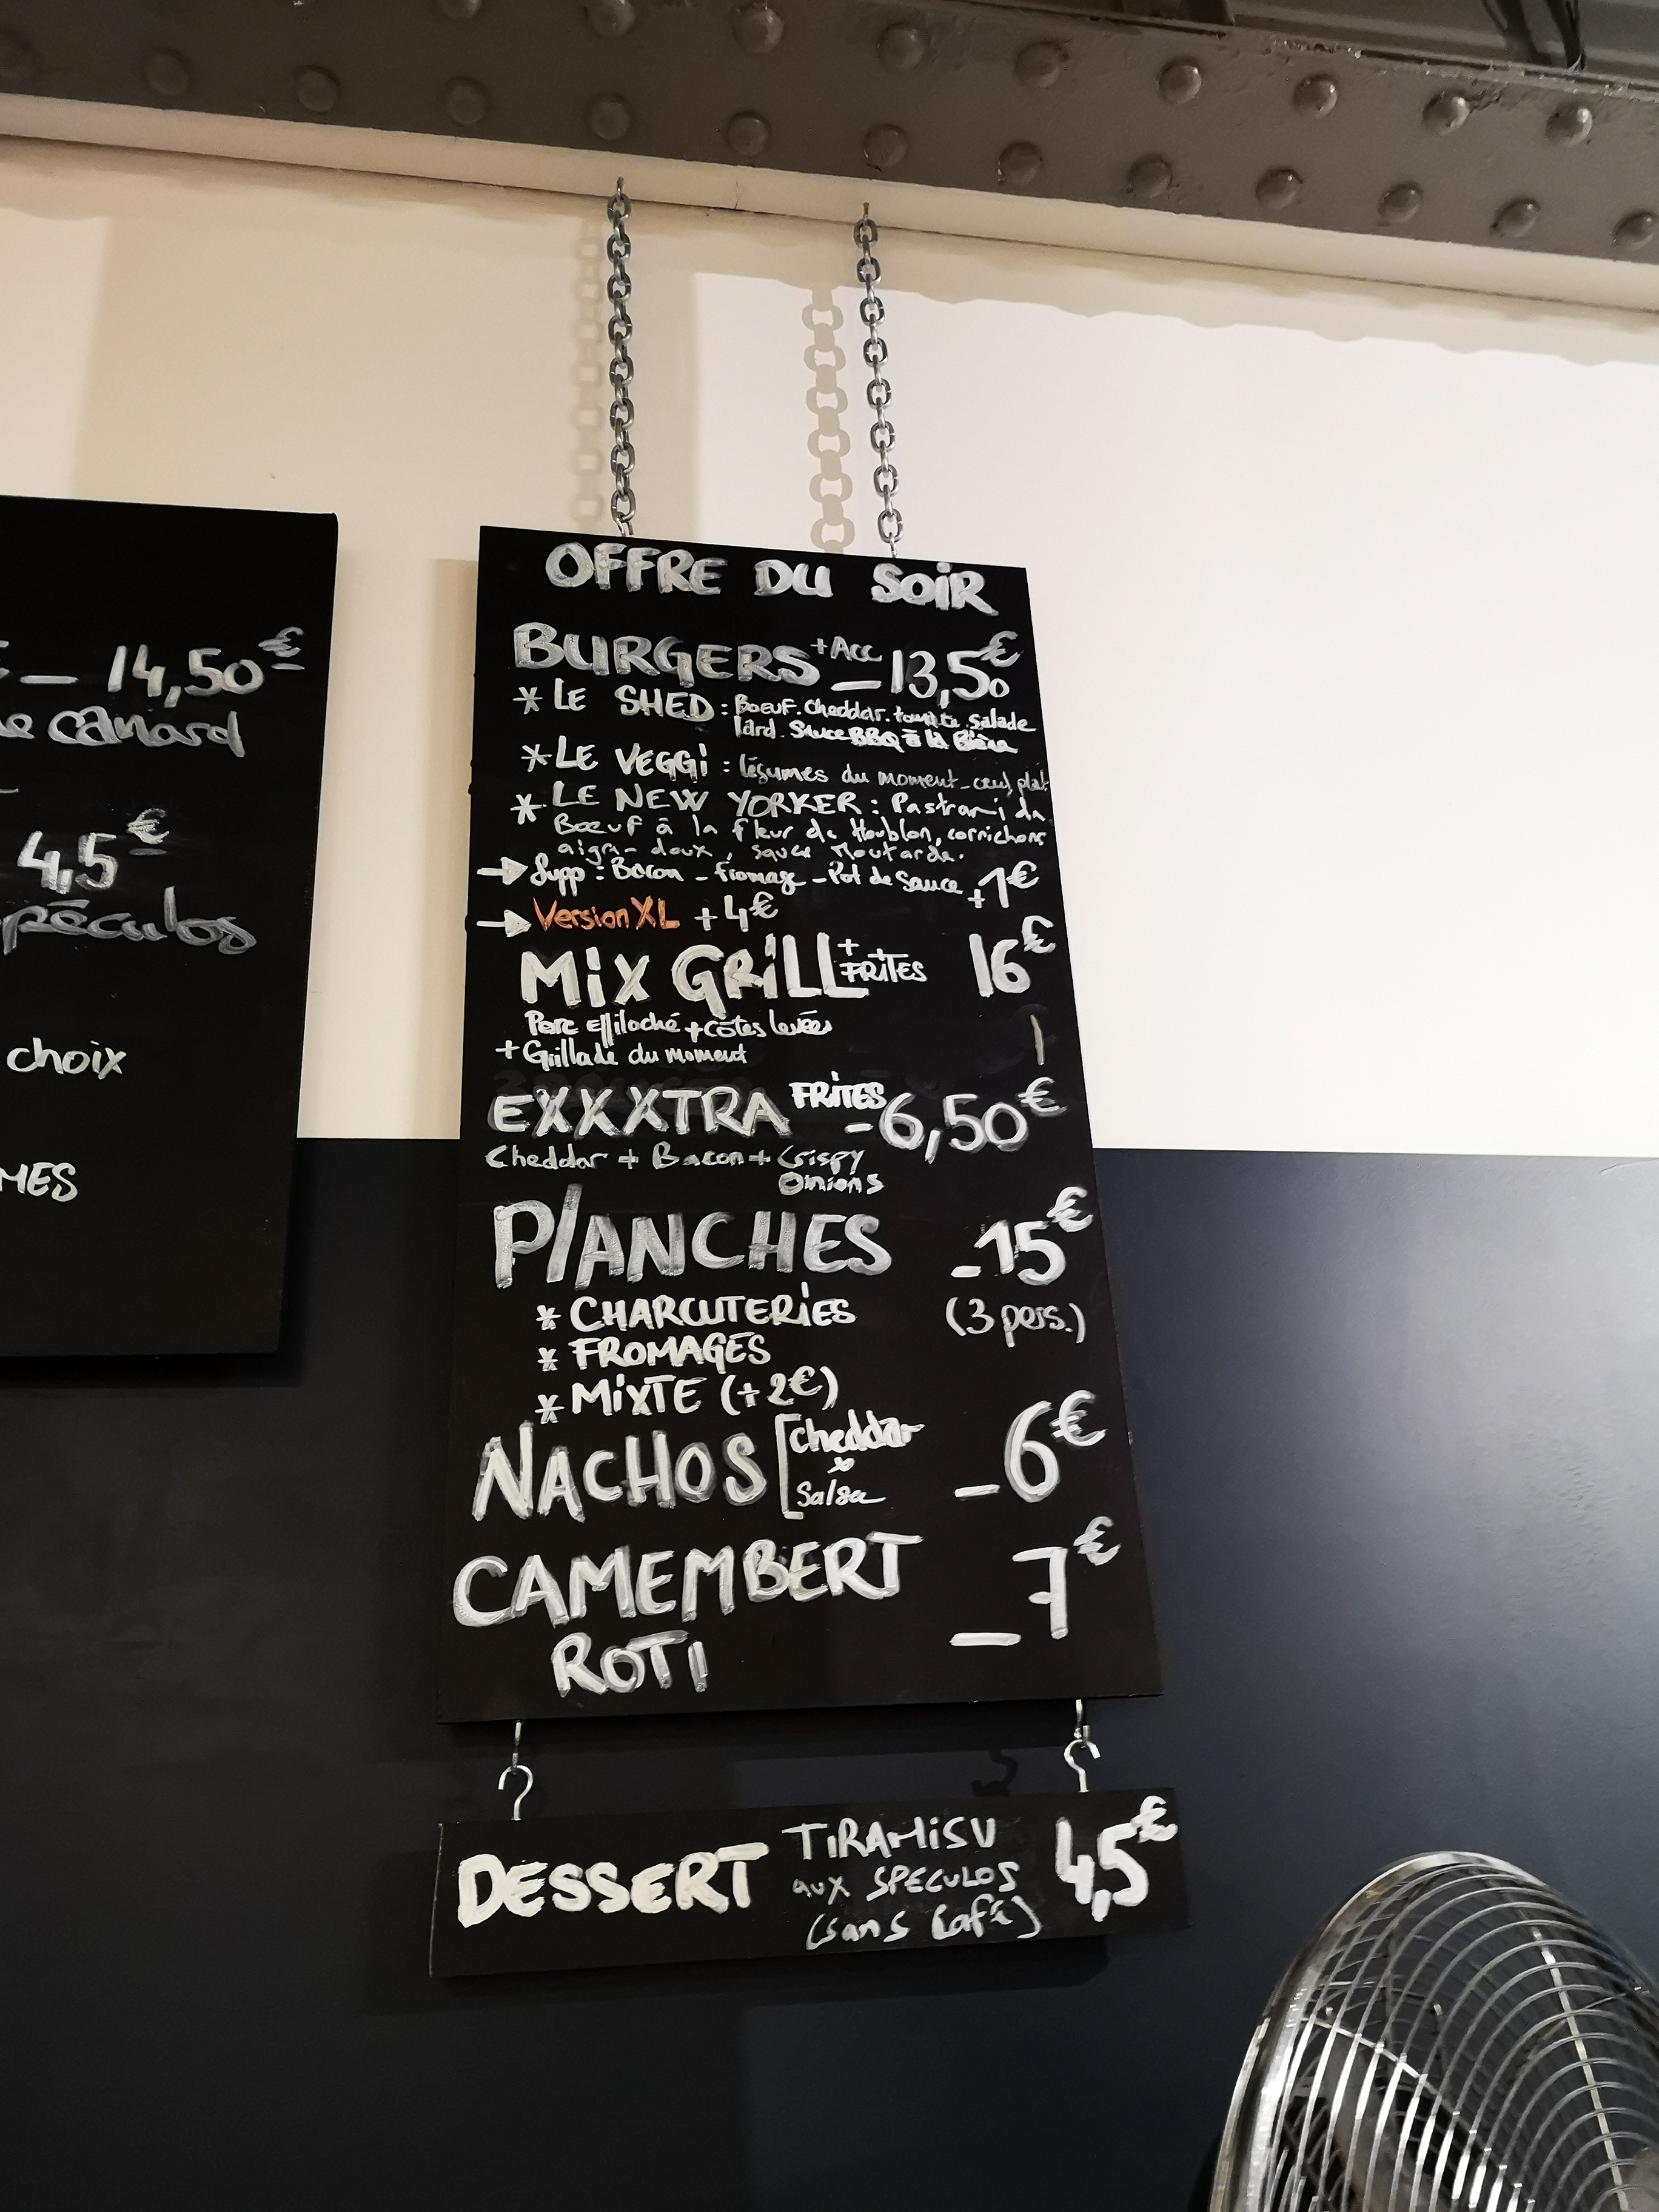 — 14,50€
canard
4,5€
choix
OFFRE DU SOIR
BURGERS +Acc — 13,50€
* LE SHED : Boeuf. Cheddar. tomate. salade
lard. Sauce BBQ à la Bière
* LE VEGGi : légumes du moment - oeuf plat
* LE NEW YORKER : Pastrami de
Boeuf à la fleur de Houblon, cornichons
aigre-doux, sauce Moutarde.
→ Supp : Bacon - fromage - Pot de Sauce +1€
→ Version XL +4€
MiX GRiLL + FRITES 16€
Porc effiloché + côtes levées
+ Grillade du moment
EXXXTRA FRITES - 6,50€
Cheddar + Bacon + Crispy
Onions
PlANCHES - 15€
* CHARCUTERiES (3 pers.)
* FROMAGES
* MiXTE (+2€)
NACHOS [ Cheddar — 6€
Salsa
CAMEMBERT — 7€
ROTI
DESSERT TiRAMiSU 4,5€
aux SPECULOS
(sans Café)